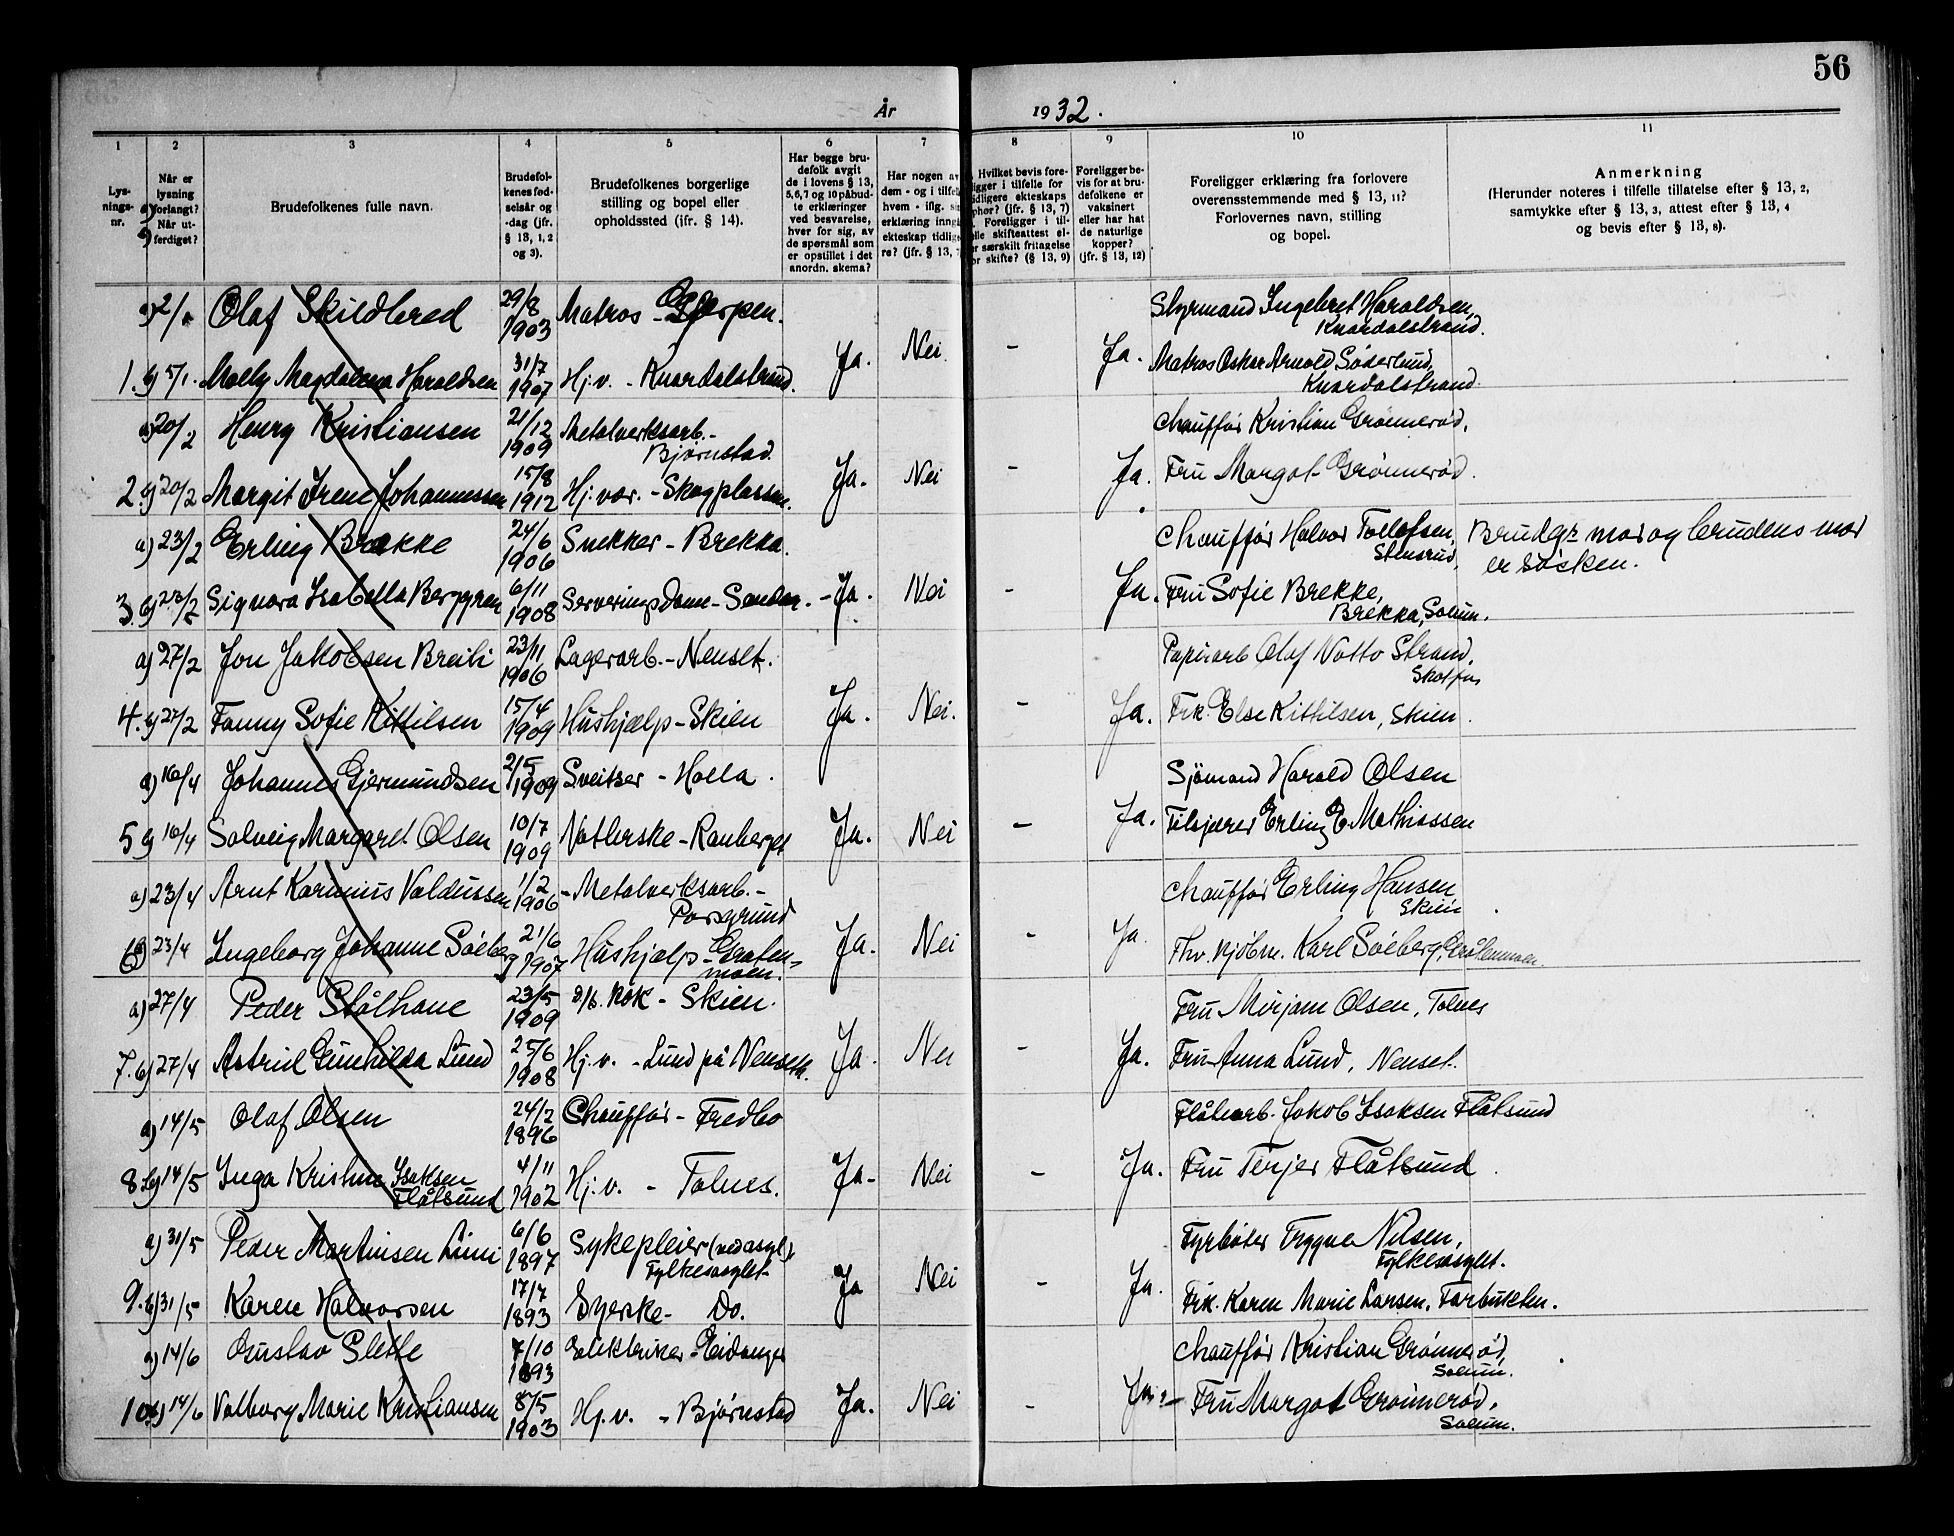 56
År 1932.
1 2 3 4 5 6 7 8 9 10 11
Lys-
nings-
nr.
Når er
lysning
forlangt?
Når ut-
ferdiget?
Brudefolkenes fulle navn.
Brudefol-
kenes fød-
selsår og
-dag (jfr.
§ 13, 1, 2
og 3).
Brudefolkenes borgerlige
stilling og bopel eller
opholdssted (ifr. § 14).
Har begge bru-
defolk avgit
de i lovens § 13,
5,6,7 og 10 påbud-
te erklæringer
ved besvarelse,
hver for sig, av
de spørsmål som
er opstillet i det
anordn. skema?
Har nogen av
dem - og i tilfel
hvem - iflg. si
erklæring inng
ekteskap tidlig
re? (jfr. § 13, 7
Hvilket bevis fore-
ligger i tilfelle for
idligere ekteskaps
phør? (jfr. § 13, 7)
Foreligger i til-
elle skifteattest el-
r særskilt fritagelse
or skifte? (§ 13, 9)
Foreligger be-
vis for at bru-
defolkene er
vaksinert
eller har hat
de naturlige
kopper?
(jfr. § 13, 12)
Foreligger erklæring fra forlovere
overensstemmende med § 13, 11?
Forlovernes navn, stilling
og bopel.
Anmerkning
(Herunder noteres i tilfelle tillatelse efter § 13, 2,
samtykke efter § 13, 3, attest efter § 13, 4
og bevis efter § 13, 8).
a) 2/1 Olaf Skildbred 29/8 1903 Matros - Gjerpen. Styrmand Ingebret Haraldsen,
Knardalstrand.
1. b) 5/1. Molly Magdalena Haraldsen 31/7 1907 Hj.v. - Knardalstrand. Ja. Nei. - Ja. Matros Oskar Arnold Söderlund,
Knardalstrand.
a) 20/2 Henry Kristiansen 21/12 1909 Metalverksarb. -
Bjørnstad. Chauffør Kristian Grønnerød.
2. b) 20/2 Margit Irene Johannessen 15/8 1912 Hj.vær. - Skogplassen. Ja. Nei - Ja. Fru Margot Grønnerød.
a) 23/2 Erling Brekke 24/6 1906 Snekker - Brekka. Chauffør Halvor Tollefsen,
Stensrud, Brudg. mor og brudens mor
er søsken.
3. b) 23/2 Signora Isabella Berggren 6/11 1908 Serveringsdame - Sanden. - Ja. Nei - Ja. Fru Sofie Brekke,
Brekka, Solum.
a) 27/2 Jon Jakobsen Breili 23/11 1906 Lagerarb. - Nenset. Papirarb Olaf Natto Strand,
Skotfos
4. b) 27/2 Fanny Sofie Kittilsen 15/4 1909 Hushjælp - Skien Ja. Nei. - Ja. Frk. Else Kittilsen, Skien.
a) 16/4 Johannes Gjermundsen 2/5 1909 Sveitser - Holla. Sjömand Harald Olsen
5 b) 16/4 Solveig Margaret Olsen 10/7 1909 Vatlerske - Rauberget Ja. Nei - Ja. Tilsjærer Erling E. Mathiassen
a) 23/4 Arnt Karinius Valdussen 1/2 1906 - Metalverksarb. -
Porsgrund Chauffør Erling Hansen
Skien.
6 b) 23/4 Ingeborg Johanne Söeberg 21/6 1907 Hushjælp - Graten-
moen. Ja. Nei - Ja. Fhv. Karl Söeberg, Gråtenmoen.
a) 27/4 Peder Stålhane 23/5 1909 d/s. kok - Skien. Fru Mirjam Olsen, Tolnes
7. b) 27/4 Astrid Gunhilda Lund 25/6 1908 Hj.v. - Lund på Nenset. Ja. Nei - Ja. Fru Anna Lund, Nenset.
a) 14/5 Olaf Olsen 24/2 1896 Chauffør - Fredbo Flåtearb. Jakob Isaksen Flåtsund
8 b) 14/5 Inga Kristine Isaksen
Flåtsund 4/11 1902 Hj.v. - Tolnes. Ja - Nei - Ja. Fru Terjer Flåtsund.
a) 31/5 Peder Martinsen 6/6 1897 Sykepleier (ved asyl),
Fylkesasylet. Fyrbøter Trygve Nilsen,
Fylkesasylet.
9. b) 31/5 Karen Halvorsen 17/7 1893 Syerske - Do. Ja Nei - Ja. Frk. Karen Marie Larsen, Torbukten.
a) 14/6 Gustav Slette 7/10 1893 Elektriker - Eidanger Chauffør Kristian Grønnerød,
Solum.
10. b) 14/6 Valborg Marie Kristiansen 8/5 1903 Hj.v. - Bjørnstad Ja. Nei - Ja? - Fru Margot Grønnerød,
Solum.